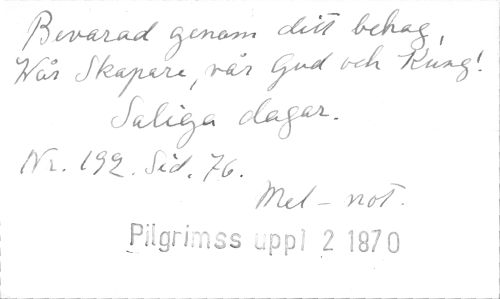 Bevarad genom ditt behag,
Wår Skapare, vår Gud och Kung!
Saliga dagar.
Nr. 192. Sid. 76.
Mel-not.
Pilgrimss uppl 2 1870